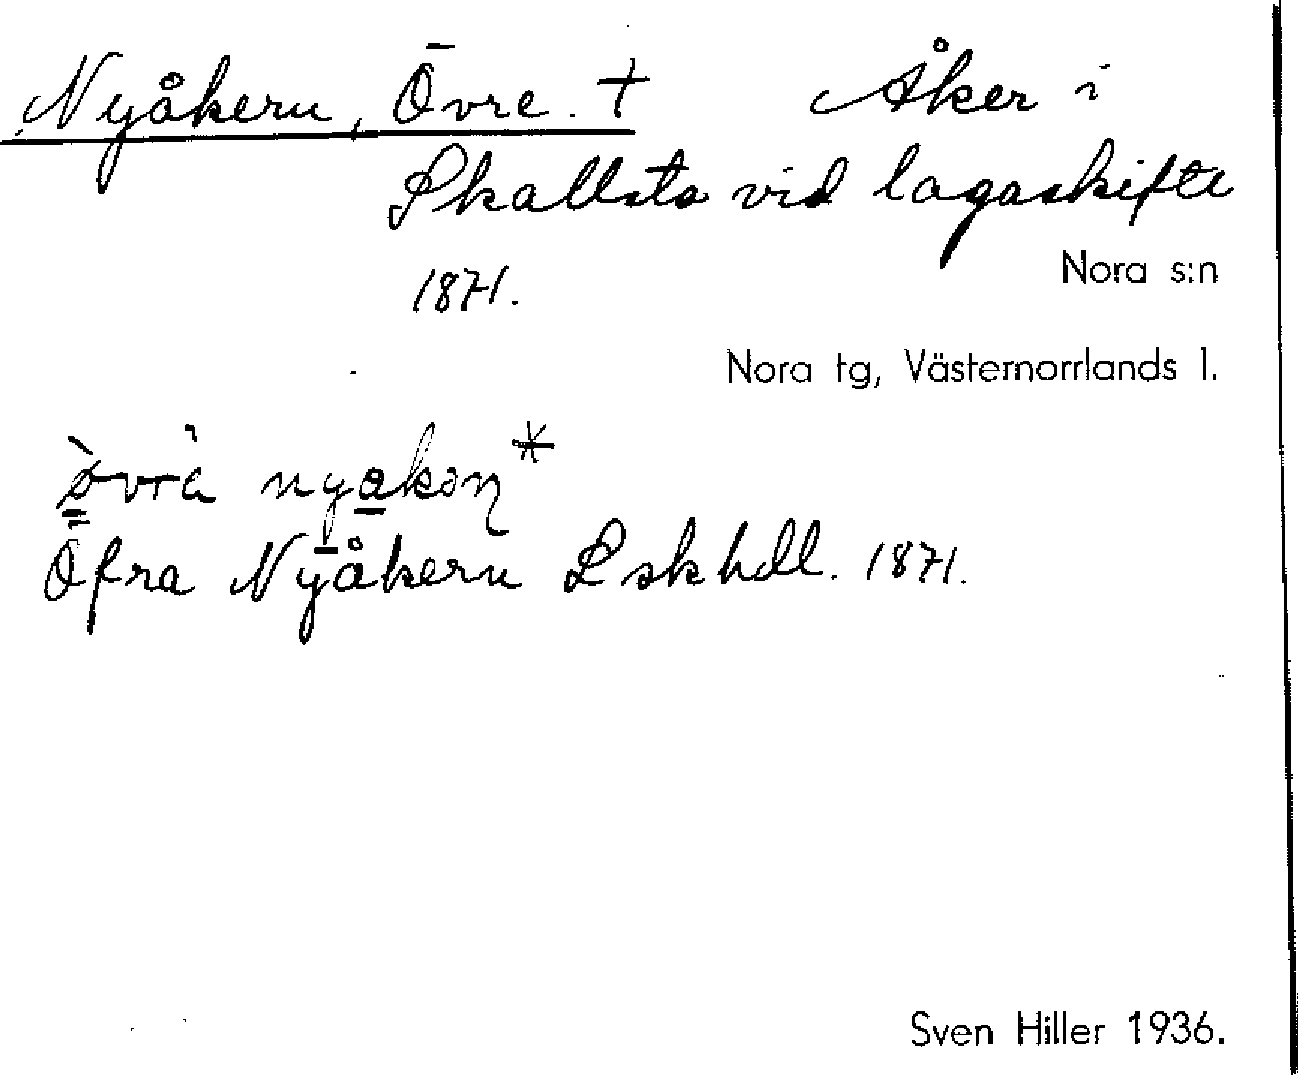 Nyåkern, Övre. † Åker i
Skallsta vid lagaskifte
1871.
Nora s:n
Nora tg, Västernorrlands l.
Öfra Nyåkern Lskhdl. 1871.
Sven Hiller 1936.